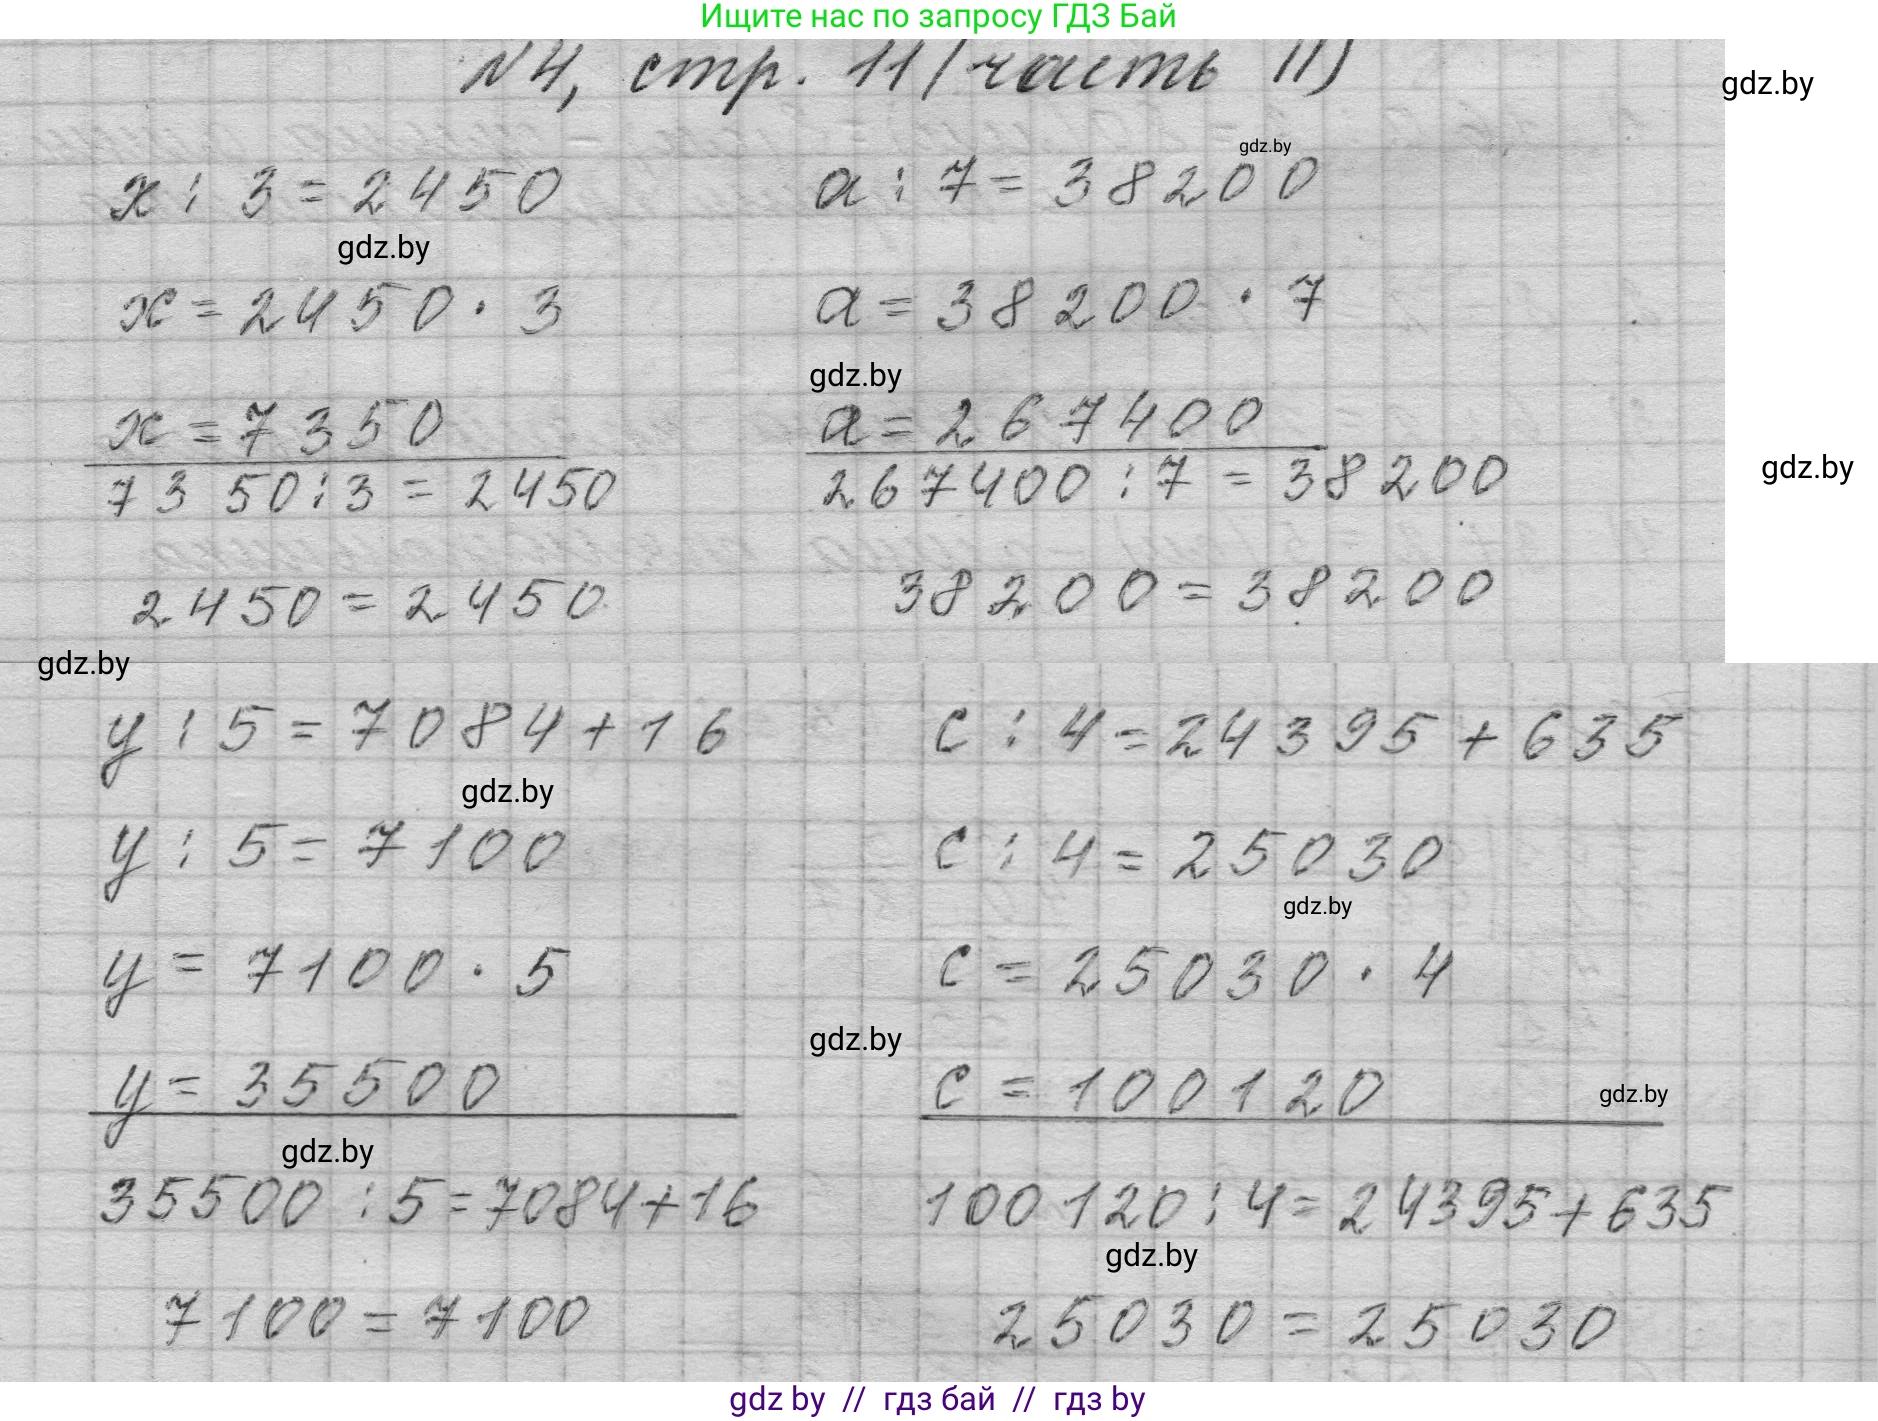 Ищите нас по запросу ГДЗ Бай
N4, стр. 11 (часть II)
gdz.by
gdz.by
x : 3 = 2450
a : 7 = 38200
gdz.by
x = 2450 · 3
a = 38200 · 7
gdz.by
x = 7350
a = 267400
gdz.by
7350 : 3 = 2450
267400 : 7 = 38200
2450 = 2450
38200 = 38200
gdz.by
y : 5 = 7084 + 16
c : 4 = 24395 + 635
gdz.by
y : 5 = 7100
c : 4 = 25030
gdz.by
y = 7100 · 5
c = 25030 · 4
gdz.by
y = 35500
c = 100120
gdz.by
gdz.by
35500 : 5 = 7084 + 16
100120 : 4 = 24395 + 635
gdz.by
7100 = 7100
25030 = 25030
gdz by // гдз бай // гдз by